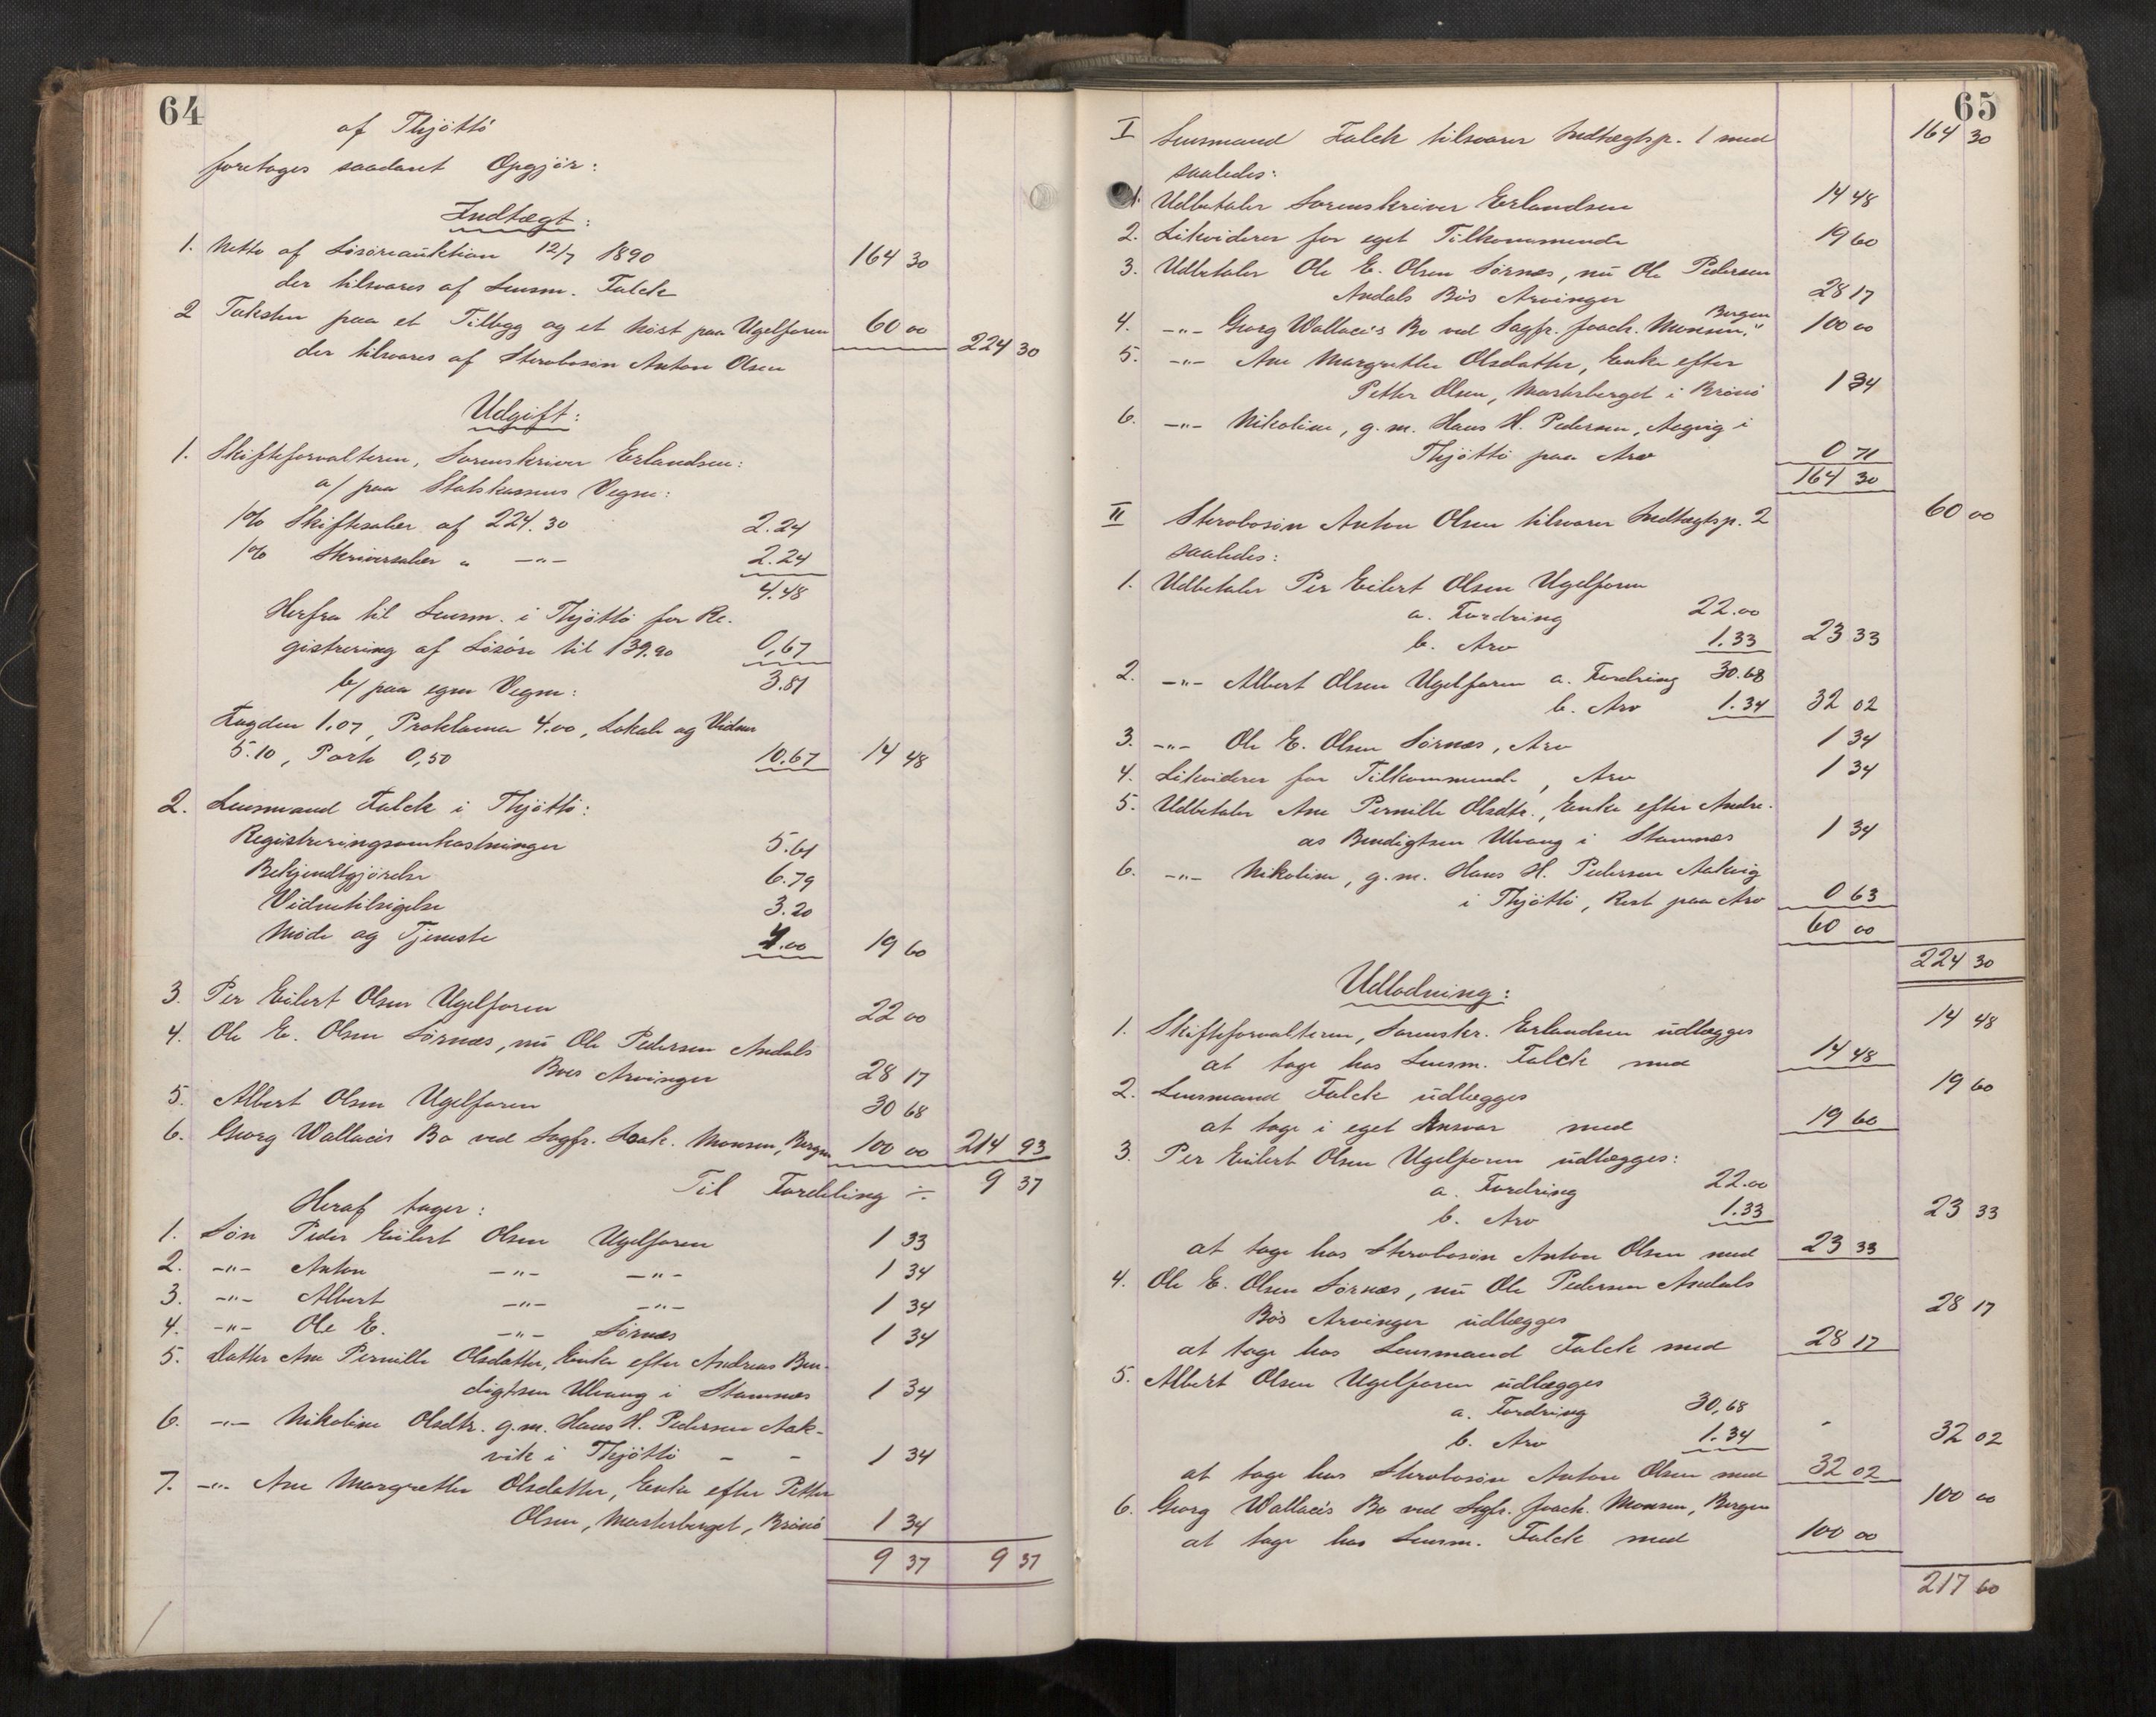 64
af Thjöttö
foretages saadant Opgjör:
Indtægt:
1. Netto af Lösöreauktion 12/7 1890 164 30
der tilsvares af Lensm. Falck
2 Taksten paa et Tilbyg og et Nöst paa Ugelforen 60 00 224 30
der tilsvares af Stervbosön Anton Olsen
Udgift:
1. Skifteforvalteren, Sorenskriver Erlandsen:
a/ paa Statskassens Vegne:
1% Skiftesalær af 224.30 2.24
1% Skriversalær " —"— 2.24
4.48
Herfra til Lensm. i Thjöttö for Re-
gistrering af Lösöre til 139.90 0,67
3.81
b/ paa egne Vegne:
Fogden 1.07, Proklama 4.00, Lokale og Vidner
5.10, Porto 0,50 10.67 14 48
2. Lensmand Falck i Thjöttö:
Registreringsomkostninger 5.61
Bekjendtgjörelse 6.79
Vidnetilsigelse 3.20
Möde og Tjeneste 4.00 19 60
3. Per Eilert Olsen Ugelforen 22 00
4. Ole E. Olsen Sörnes, nu Ole Pedersen Andals
Boes Arvinger 28 17
5. Albert Olsen Ugelforen 30 68
6. Georg Wallaces Bo ved Sagfr. Joak. Monsen, Bergen 100 00 214 93
Til Fordeling ÷ 9 37
Heraf tager:
1. Sön Peder Eilert Olsen Ugelforen 1 33
2. —"— Anton —"— —"— 1 34
3. —"— Albert —"— —"— 1 34
4. —"— Ole E. —"— Sörnes 1 34
5. Datter Ane Pernille Olsdatter, Enke efter Andreas Ben-
digtsen Ulvang i Stamnes 1 34
6. —"— Nikoline Olsdtr. g.m. Hans H. Pedersen Aak-
vik i Thjöttö - - 1 34
7. —"— Ane Margrethe Olsdatter, Enke efter Petter
Olsen, Masterberget, Brönö 1 34
9 37 9 37
65
I Lensmand Falck tilsvarer Indtægtsp. 1 med 164 30
saaledes:
1. Udbetaler Sorenskriver Erlandsen 14 48
2. Likviderer for eget Tilkommende 19 60
3. Udbetaler Ole E. Olsen Sörnes, nu Ole Pedersen
Andals Bös Arvinger 28 17
4. —"— Georg Wallace's Bo ved Sagfr. Joach. Monsen, Bergen 100 00
5. —"— Ane Margrethe Olsdatter, Enke efter
Petter Olsen, Masterberget i Brönö 1 34
6. —"— Nikoline, g.m. Hans H. Pedersen, Aagvig i
Thjöttö paa Arv 0 71
164 30
II Stervbosön Anton Olsen tilsvarer Indtægtsp. 2 60 00
saaledes:
1. Udbetaler Per Eilert Olsen Ugelforen
a. Fordring 22.00
b. Arv 1.33 23 33
2. —"— Albert Olsen Ugelforen a. Fordring 30.68
b. Arv 1.34 32 02
3. —"— Ole E. Olsen Sörnes, Arv 1 34
4. Likviderer for Tilkommende, Arv 1 34
5. Udbetaler Ane Pernille Olsdtr., Enke efter Andre-
as Bendigtsen Ulvang i Stamnes 1 34
6. —"— Nikoline, g.m. Hans H. Pedersen Aakvig
i Thjöttö, Rest paa Arv 0 63
60 00
224 30
Udlodning:
1. Skifteforvalteren, Sorenskr. Erlandsen udlægges 14 48
at tage hos Lensm. Falck med 14 48
2. Lensmand Falck udlægges 19 60
at tage i eget Ansvar med 19 60
3. Per Eilert Olsen Ugelforen udlægges:
a. Fordring 22.00
b. Arv 1.33 23 33
at tage hos Stervbosön Anton Olsen med 23 33
4. Ole E. Olsen Sörnes, nu Ole Pedersen Andals
Bös Arvinger udlægges 28 17
at tage hos Lensmand Falck med 28 17
5. Albert Olsen Ugelforen udlægges
a. Fordring 30,68
b. Arv 1.34 32 02
at tage hos Stervbosön Anton Olsen med 32 02
6. Georg Wallace's Bo ved Sagfr. Joach. Monsen, Bergen 100 00
at tage hos Lensm. Falck med 100 00
217 60